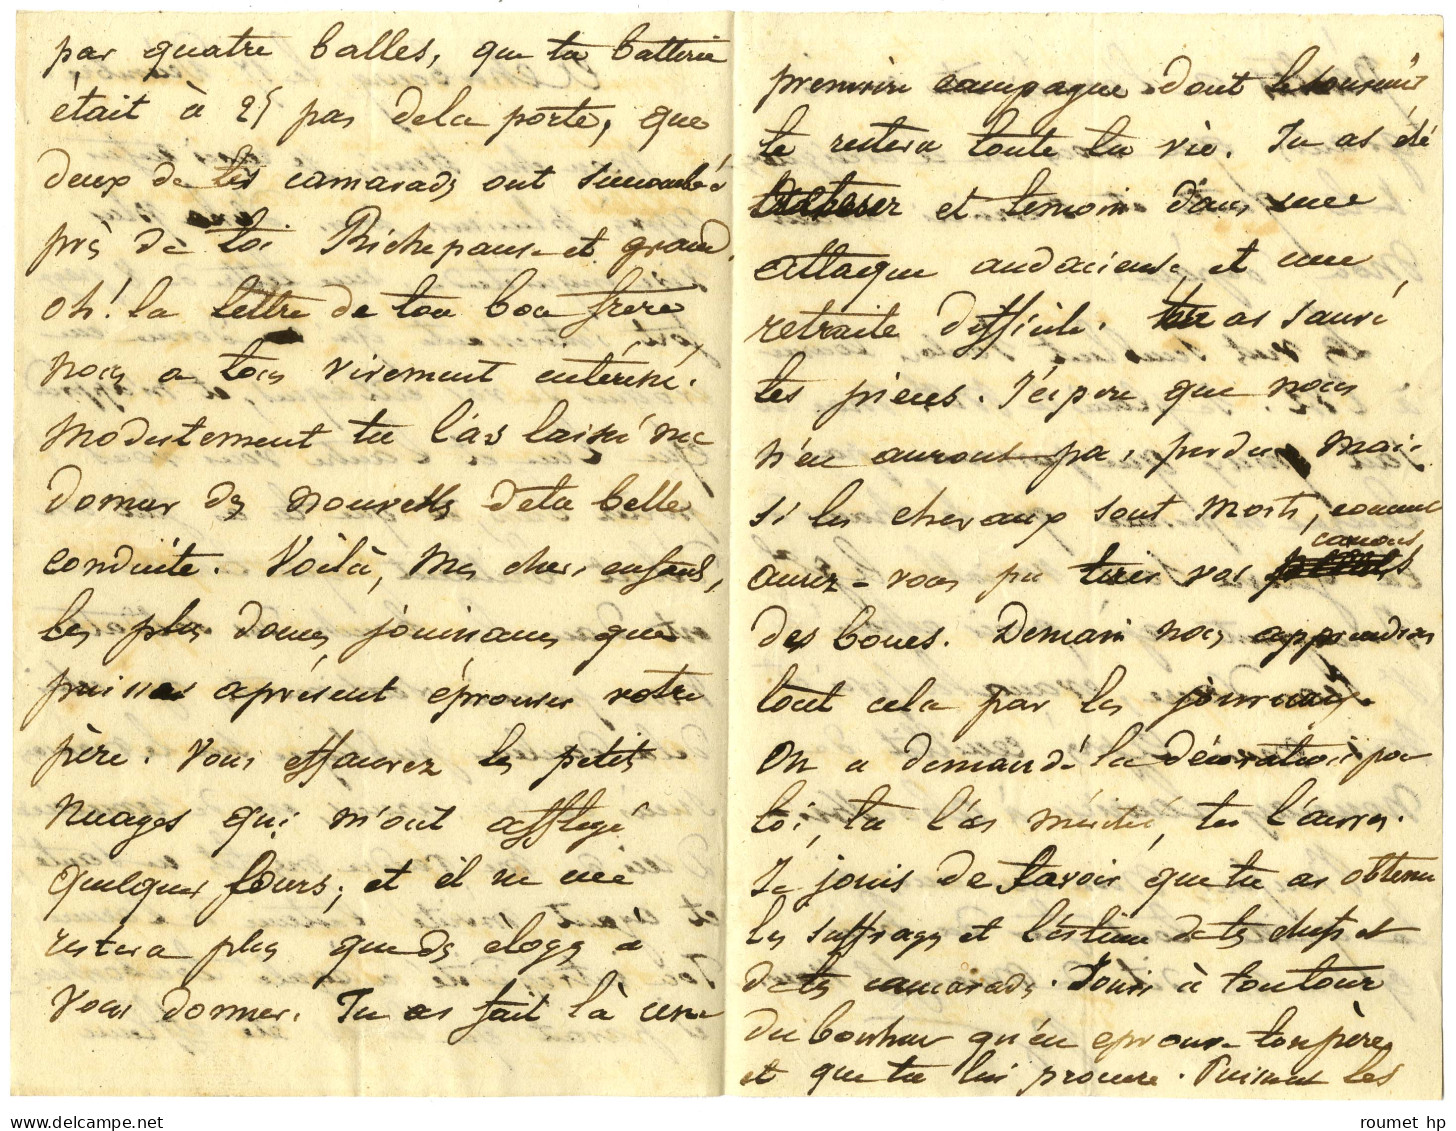 par quatre balles, que ta batterie
était à 25 pas dela porte, que
deux de tes camarades ont sucombés
près de toi Richepanse et grand.
oh! la lettre de ton bon frère
nous a tous vivement
modestement tu l'as laissé me
donner des nouvelles deta belle
conduite. Voilà, mes chers enfans,
les plus douces jouissances que
puisses aprésent éprouver votre
père. Vous effacerez les petits
nuages qui m'ont affligé
quelques jours; et il ne me
restera plus quedes eloges a
vous donner. Tu as fait là une
première campagne dont le souvenir
te restera toute ta vie. Tu as été
et temoin dans une
attaque audacieuse et une
retraite difficile. tu as sauvé
tes pieces. J'éspere que nous
n'en aurons pas perdu mais
si les chevaux sont morts, comme
canons
aurez-vous pu tirer vos
des boues. Demain nous apprendrons
tout cela par les journaux.
On a demandé la décoration pour
toi, tu l'as méritée, tu l'auras.
Je jouis de savoir que tu as obtenu
les suffrages et l'éstime detes chefs et
detes camarades. Jouis à tontour
du bonheur qu'en eprouve tonpère
et que tu lui procure. Puissent les
roumet hp